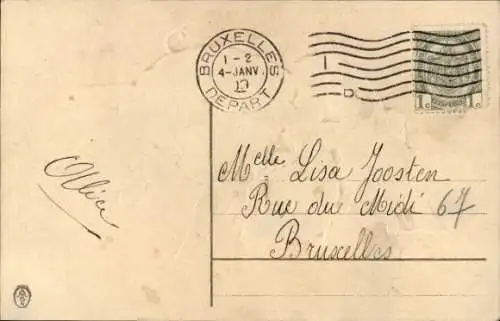 BRUXELLES
1-2
4-JANV
DEPART
1
D
1c 1c
Mcelle Lisa Joosten
Rue du Midi 67
Bruxelles
Alice